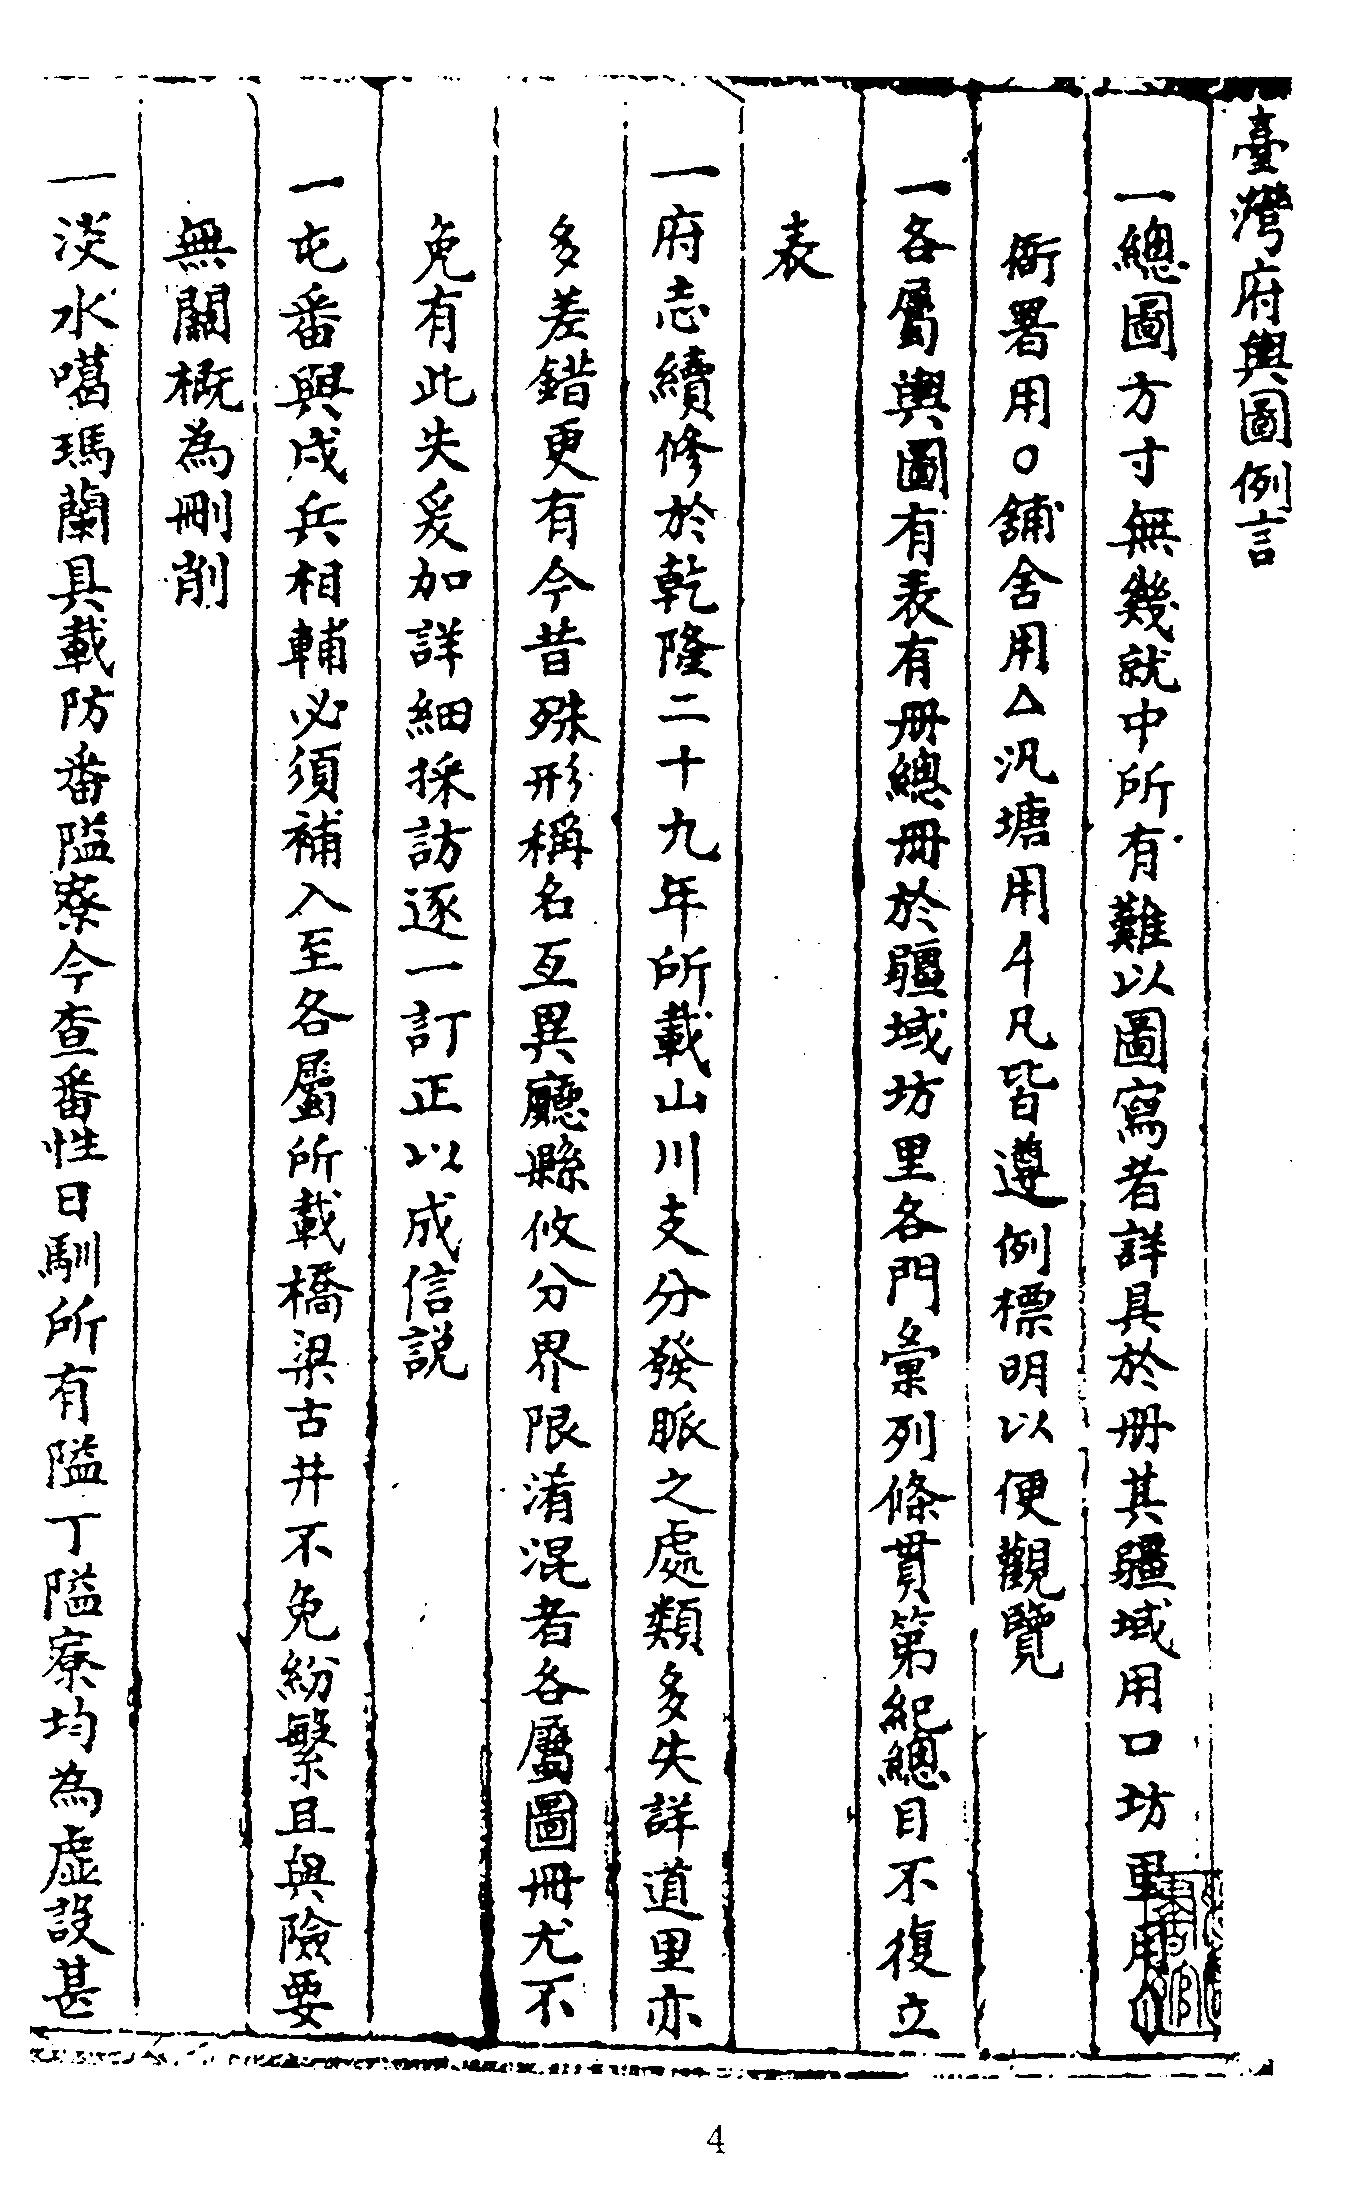 臺灣府輿圖例言
一總圖方寸無幾就中所有難以圖寫者詳具於冊其疆域用口坊里用
衙署用○舖舍用△汛塘用凡皆遵例標明以便觀覽
一各屬輿圖有表有冊總冊於疆域坊里各門彙列條貫第紀總目不復立
表
一府志續修於乾隆二十九年所載山川支分發脈之處類多失詳道里亦
多差錯更有今昔殊形稱名互異廳縣攸分界限淆混者各屬圖冊尤不
免有此失爰加詳細採訪逐一訂正以成信說
一屯番與戍兵相輔必須補入至各屬所載橋梁古井不免紛繁且與險要
無關概為刪削
一淡水噶瑪蘭具載防番隘寮今查番性日馴所有隘丁隘寮均為虛設甚
4